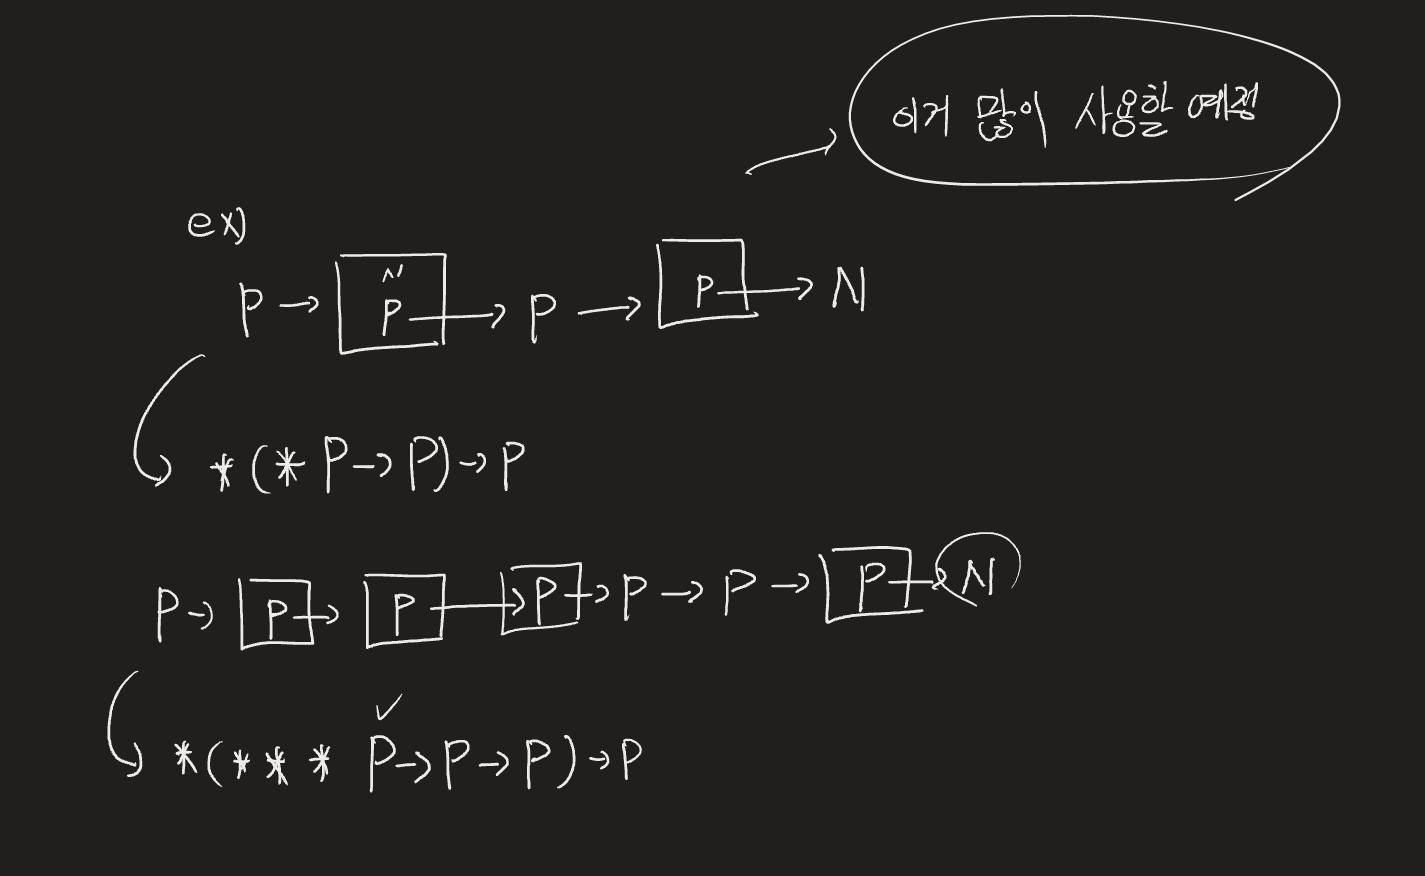 이거 많이 사용할 예정
ex)
P → N P → P → P → N
* (* P → P) → P
P → P → P → P → P → P → P → N
* (* * * P → P → P) → P